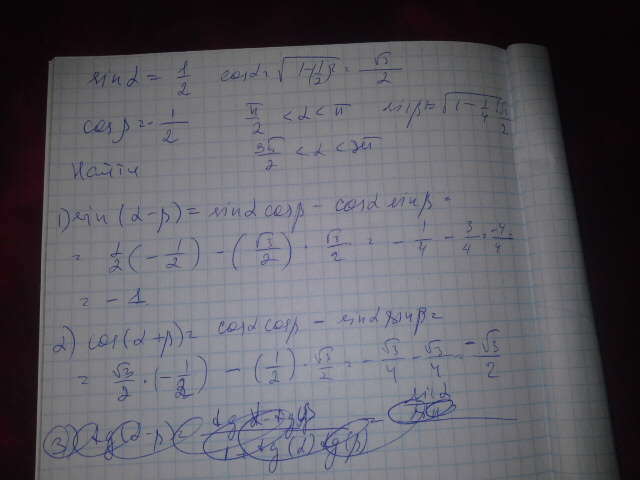 sin α = 1/2 cos α = √(1-(1/2)²) = √3/2
cos β = - 1/2 π/2 < α < π sin β = √(1 - 1/4) = √3/2
Найти 3π/2 < α < 2π
1) sin (α - β) = sin α cos β - cos α sin β =
= 1/2 (- 1/2) - (√3/2) · √3/2 = - 1/4 - 3/4 = -4/4
= - 1
2) cos (α + β) = cos α cos β - sin α sin β =
= √3/2 · (- 1/2) - (1/2) · √3/2 = - √3/4 - √3/4 = - √3/2
3) tg (α - β) = tg α - tg β / 1 + tg (α) tg (β)